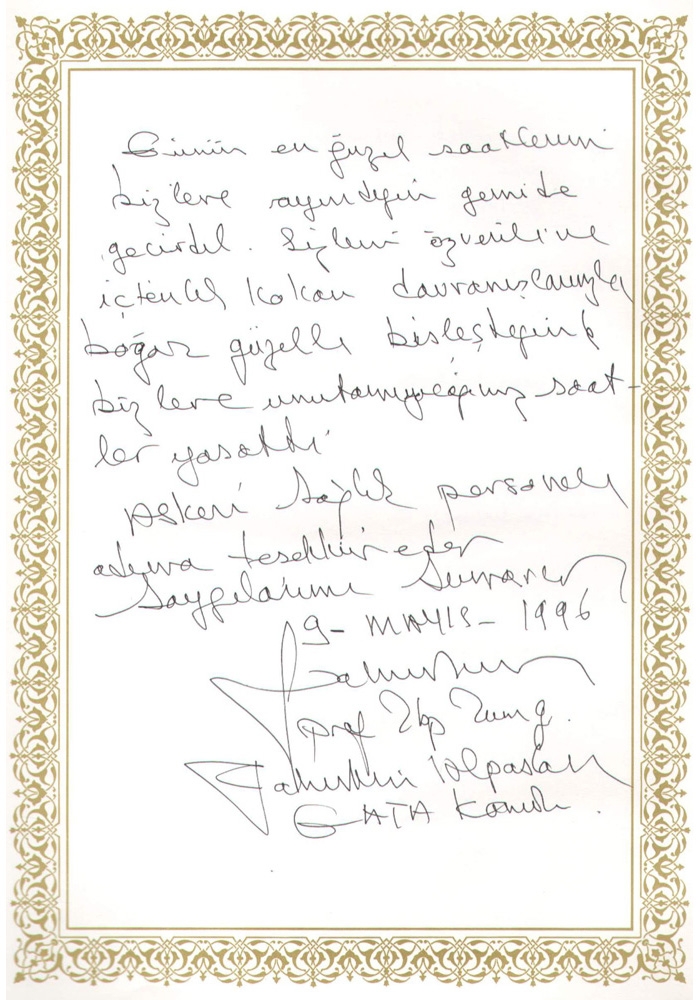 Günün en güzel saatlerini
bizlere ayırdığın gemide
geçirdik. Sizlerin özverili ve
içtenlik kokan davranışlarınızla
boğaz güzelliği birleştiğinde
bizlere unutamıyacağımız saat-
ler yaşattı.
Askeri Sağlık personeli
adına teşekkür eder
Saygılarımı Sunarım
9- MAYIS- 1996
Prof Tbp Tümg.
Fahrettin Alpaslan
GATA Komutanı